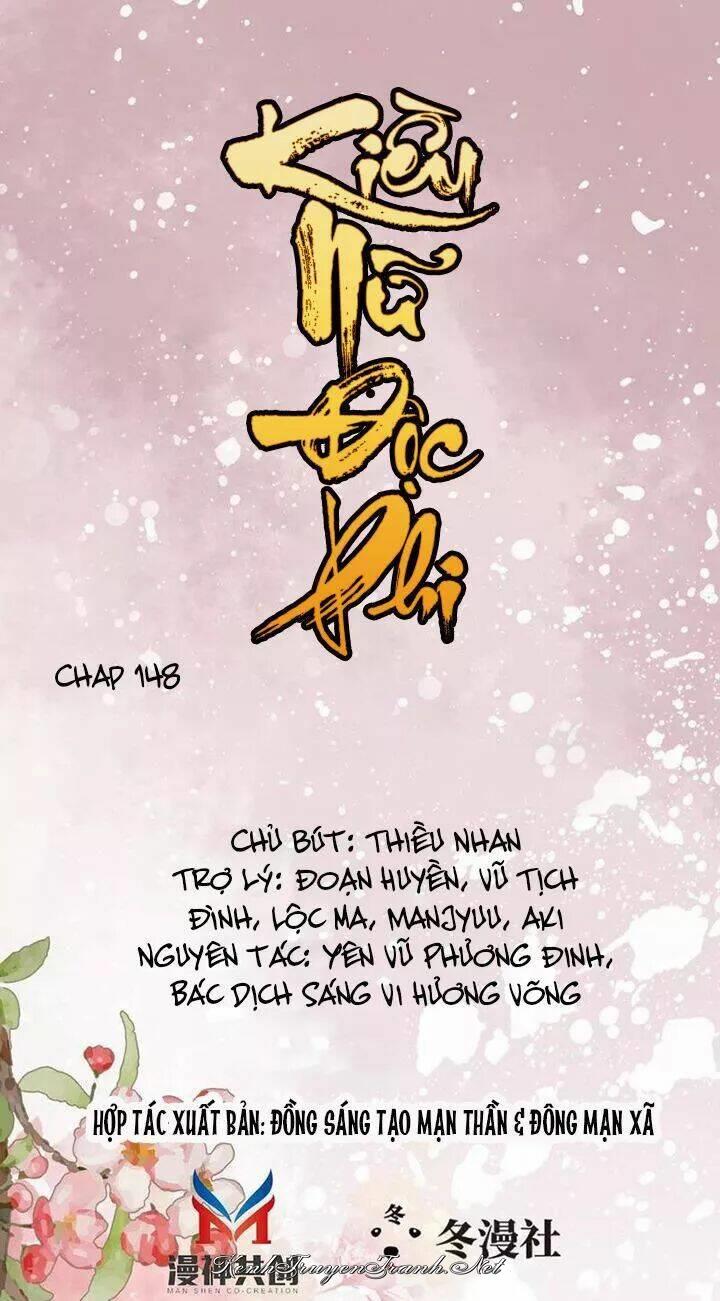 Kiều
Nữ
Độc
Phi
CHAP 148
CHỦ BÚT: THIỀU NHAN
TRỢ LÝ: ĐOẠN HUYỀN, VŨ TỊCH
ĐÌNH, LỘC MA, MANJYUU, AKI
NGUYÊN TÁC: YÊN VŨ PHƯƠNG ĐINH,
BÁC DỊCH SÁNG VI HƯƠNG VÕNG
HỢP TÁC XUẤT BẢN: ĐỒNG SÁNG TẠO MẠN THẦN & ĐÔNG MẠN XÃ
冬
冬漫社
漫神共创
MAN SHEN CO-CREATION
KenhTruyenTranh.Net